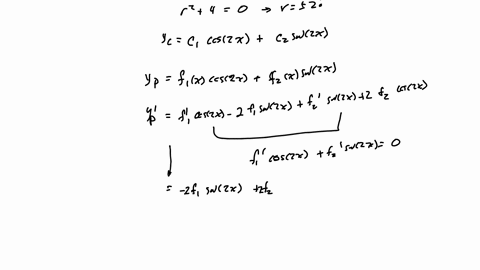 r² + 4 = 0 → r = ± 2i
y_c = C₁ cos(2x) + C₂ sin(2x)
y_p = f₁(x) cos(2x) + f₂(x) sin(2x)
y_p' = f₁' cos(2x) - 2 f₁ sin(2x) + f₂' sin(2x) + 2 f₂ cos(2x)
f₁' cos(2x) + f₂' sin(2x) = 0
= -2f₁ sin(2x) + 2f₂